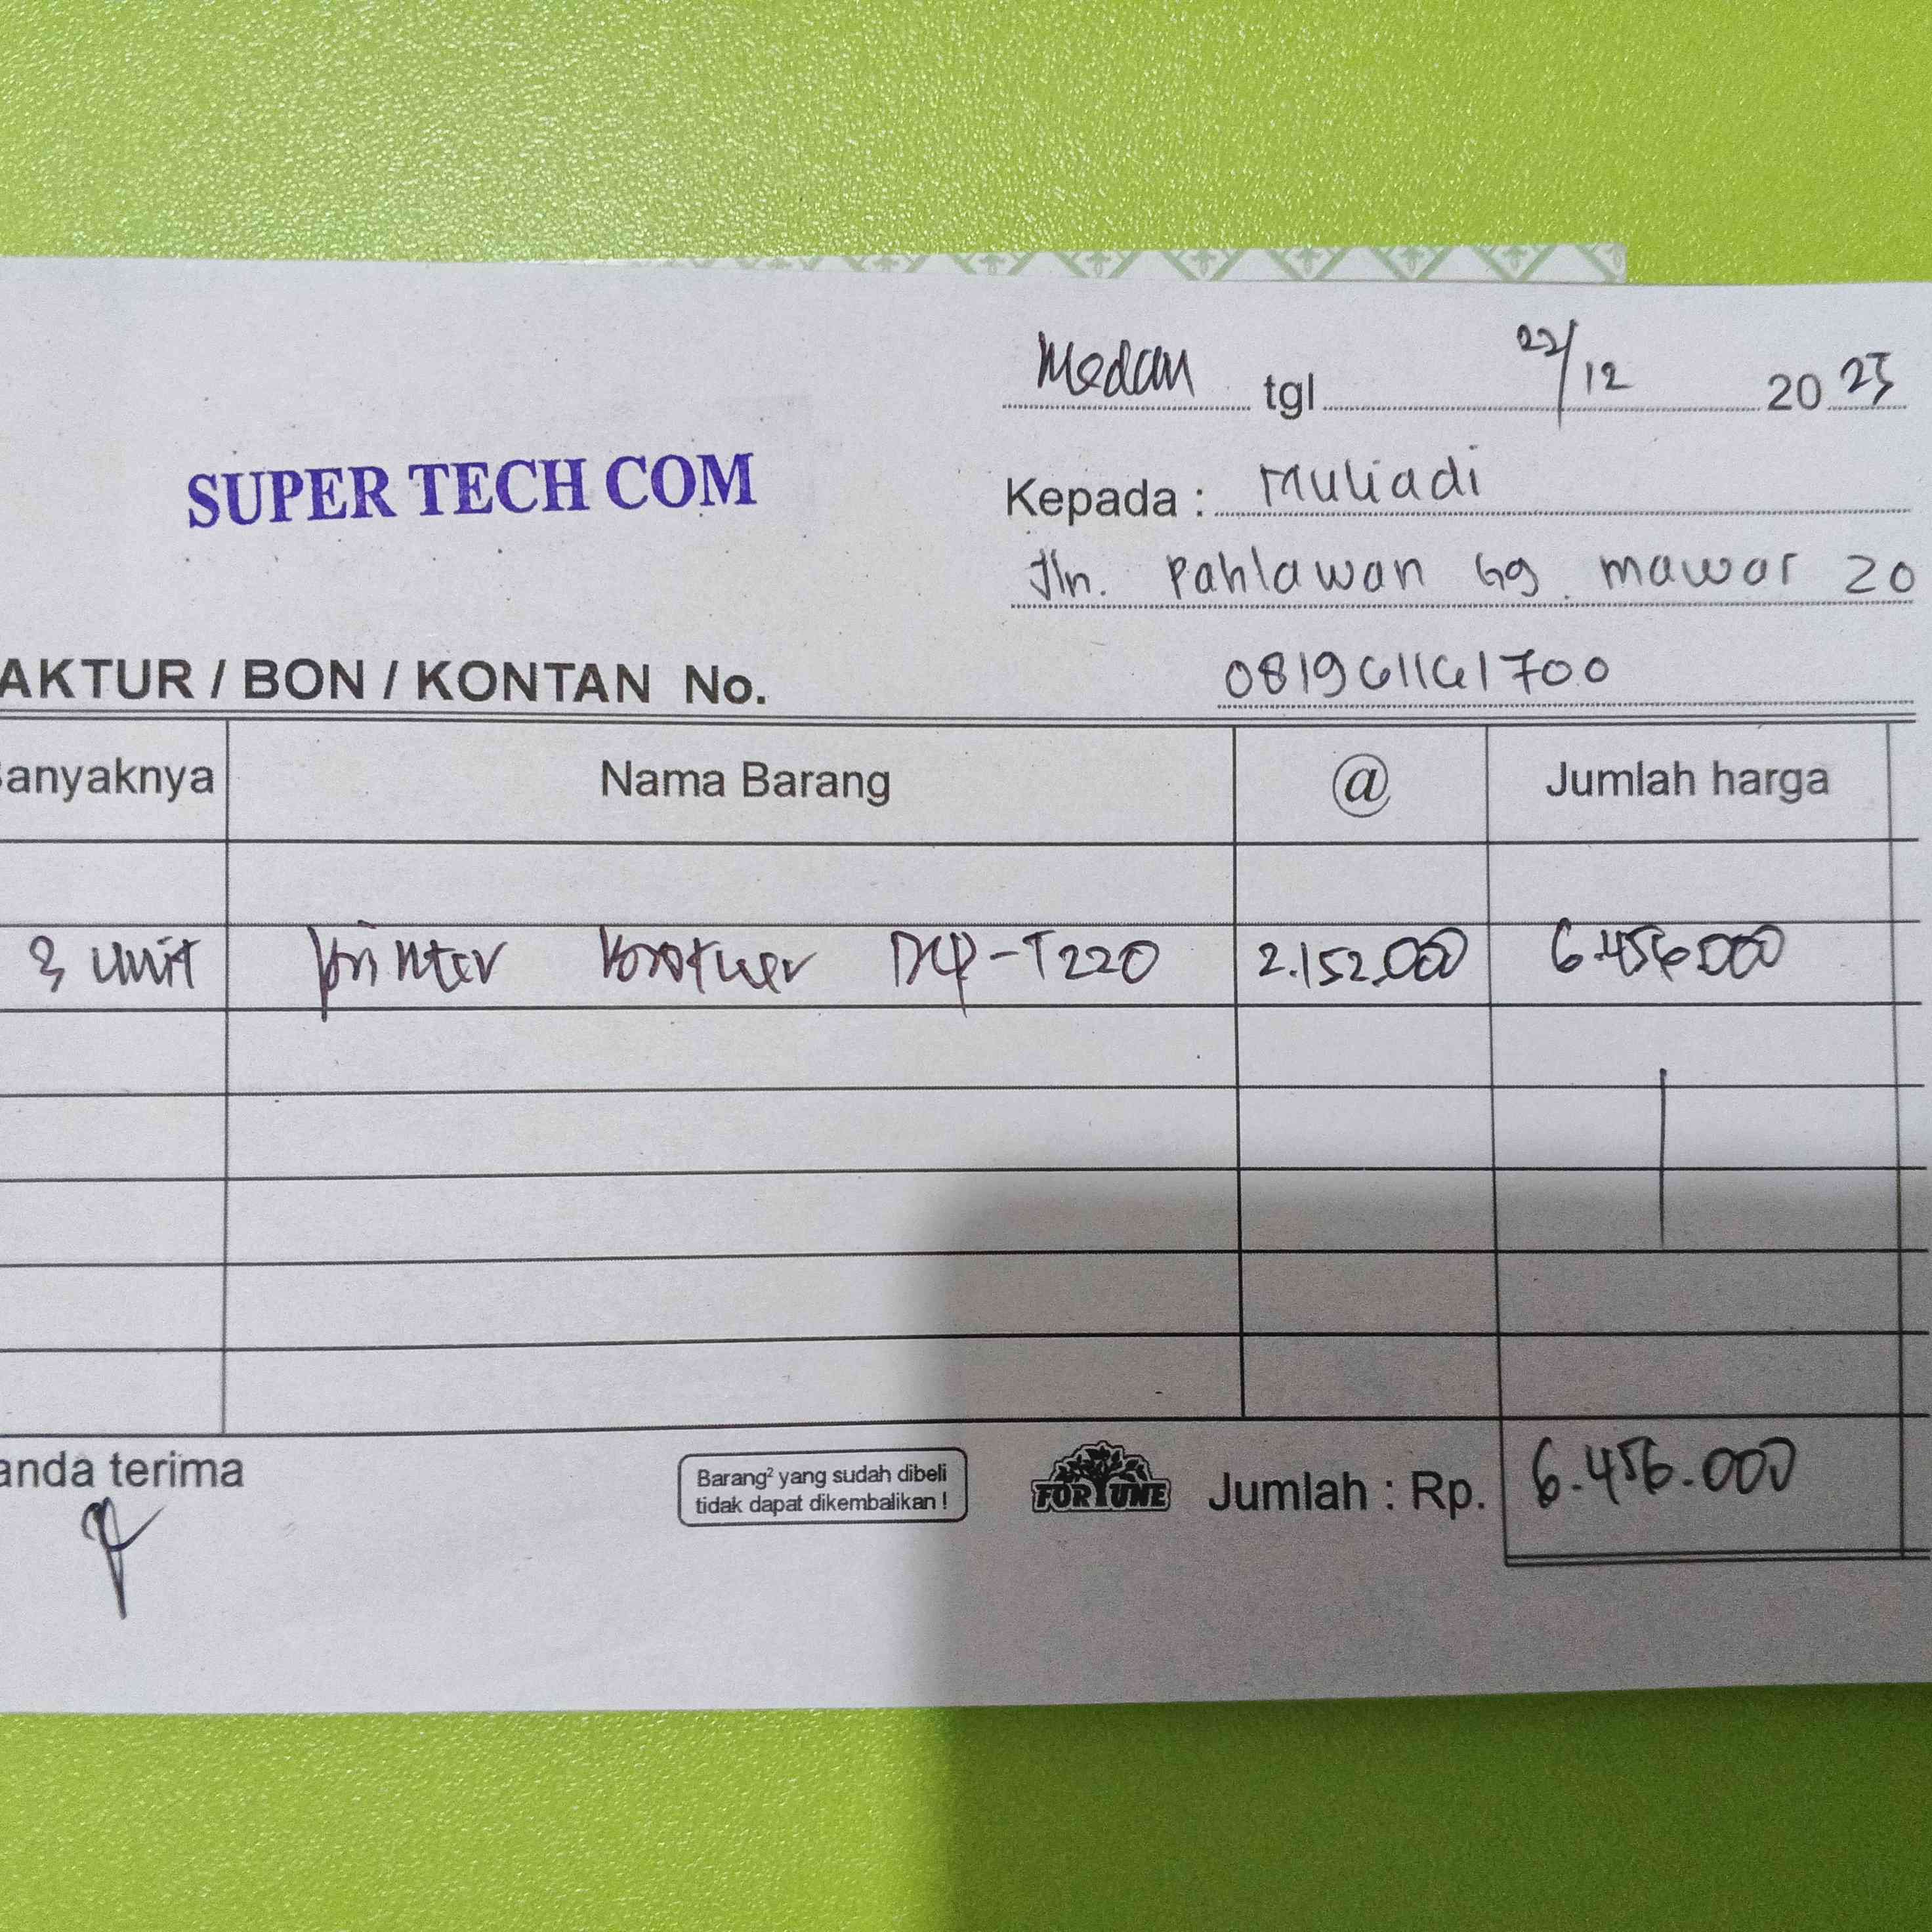 Medan tgl 22/12 20 25
SUPER TECH COM
Kepada : Muliadi
Jln. Pahlawan Gg. mawar 20
AKTUR / BON / KONTAN No.
081961161700
anyaknya Nama Barang @ Jumlah harga
3 unit printer brother DCP-T220 2.152.000 6.456.000
anda terima
Barang² yang sudah dibeli
tidak dapat dikembalikan !
FORTUNE
Jumlah : Rp. 6.456.000